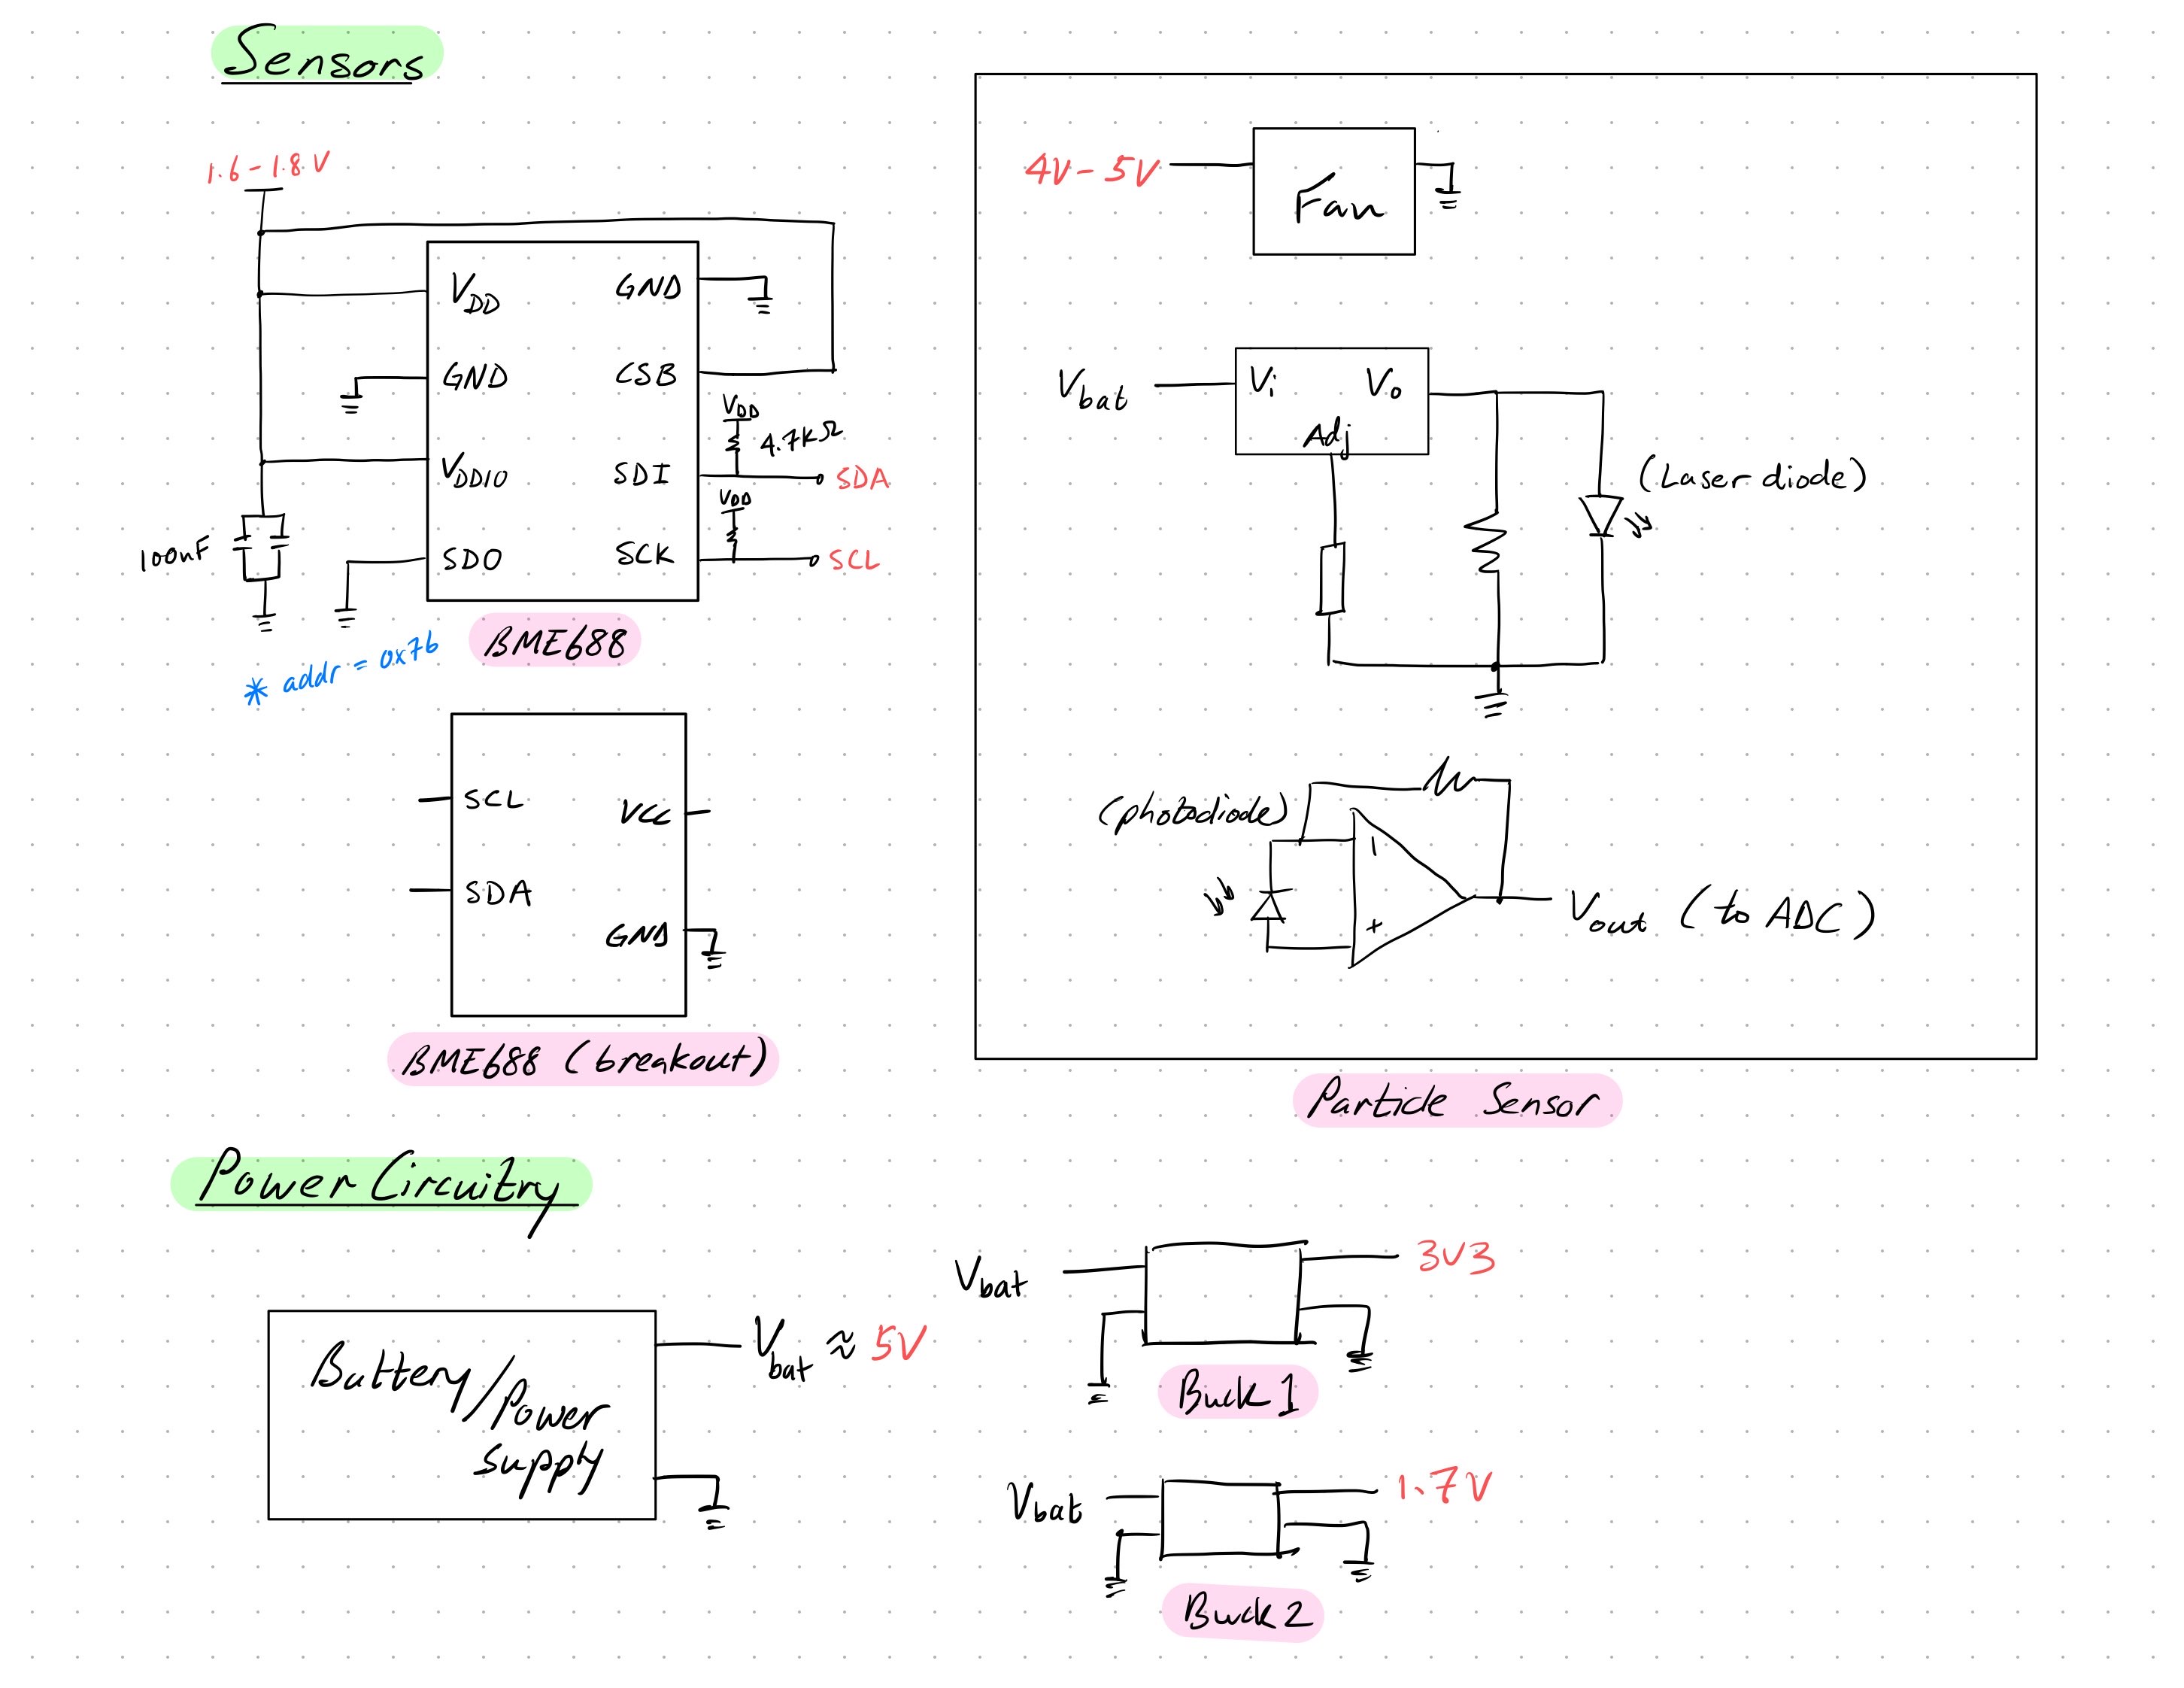 Sensors
1.6-1.8 V
VDD
GND
GND
CSB
VDD
4.7kΩ
VDDIO
SDI
SDA
VDD
100nF
SDO
SCK
SCL
BME688
* addr = 0x76
SCL
VCC
SDA
GND
BME688 (breakout)
4V - 5V
Fan
Vbat
Vi
Vo
Adj
(Laser diode)
(photodiode)
-
+
Vout (to ADC)
Particle Sensor
Power Circuitry
Battery/Power
supply
Vbat ≈ 5V
Vbat
3V3
Buck 1
Vbat
1.7V
Buck 2